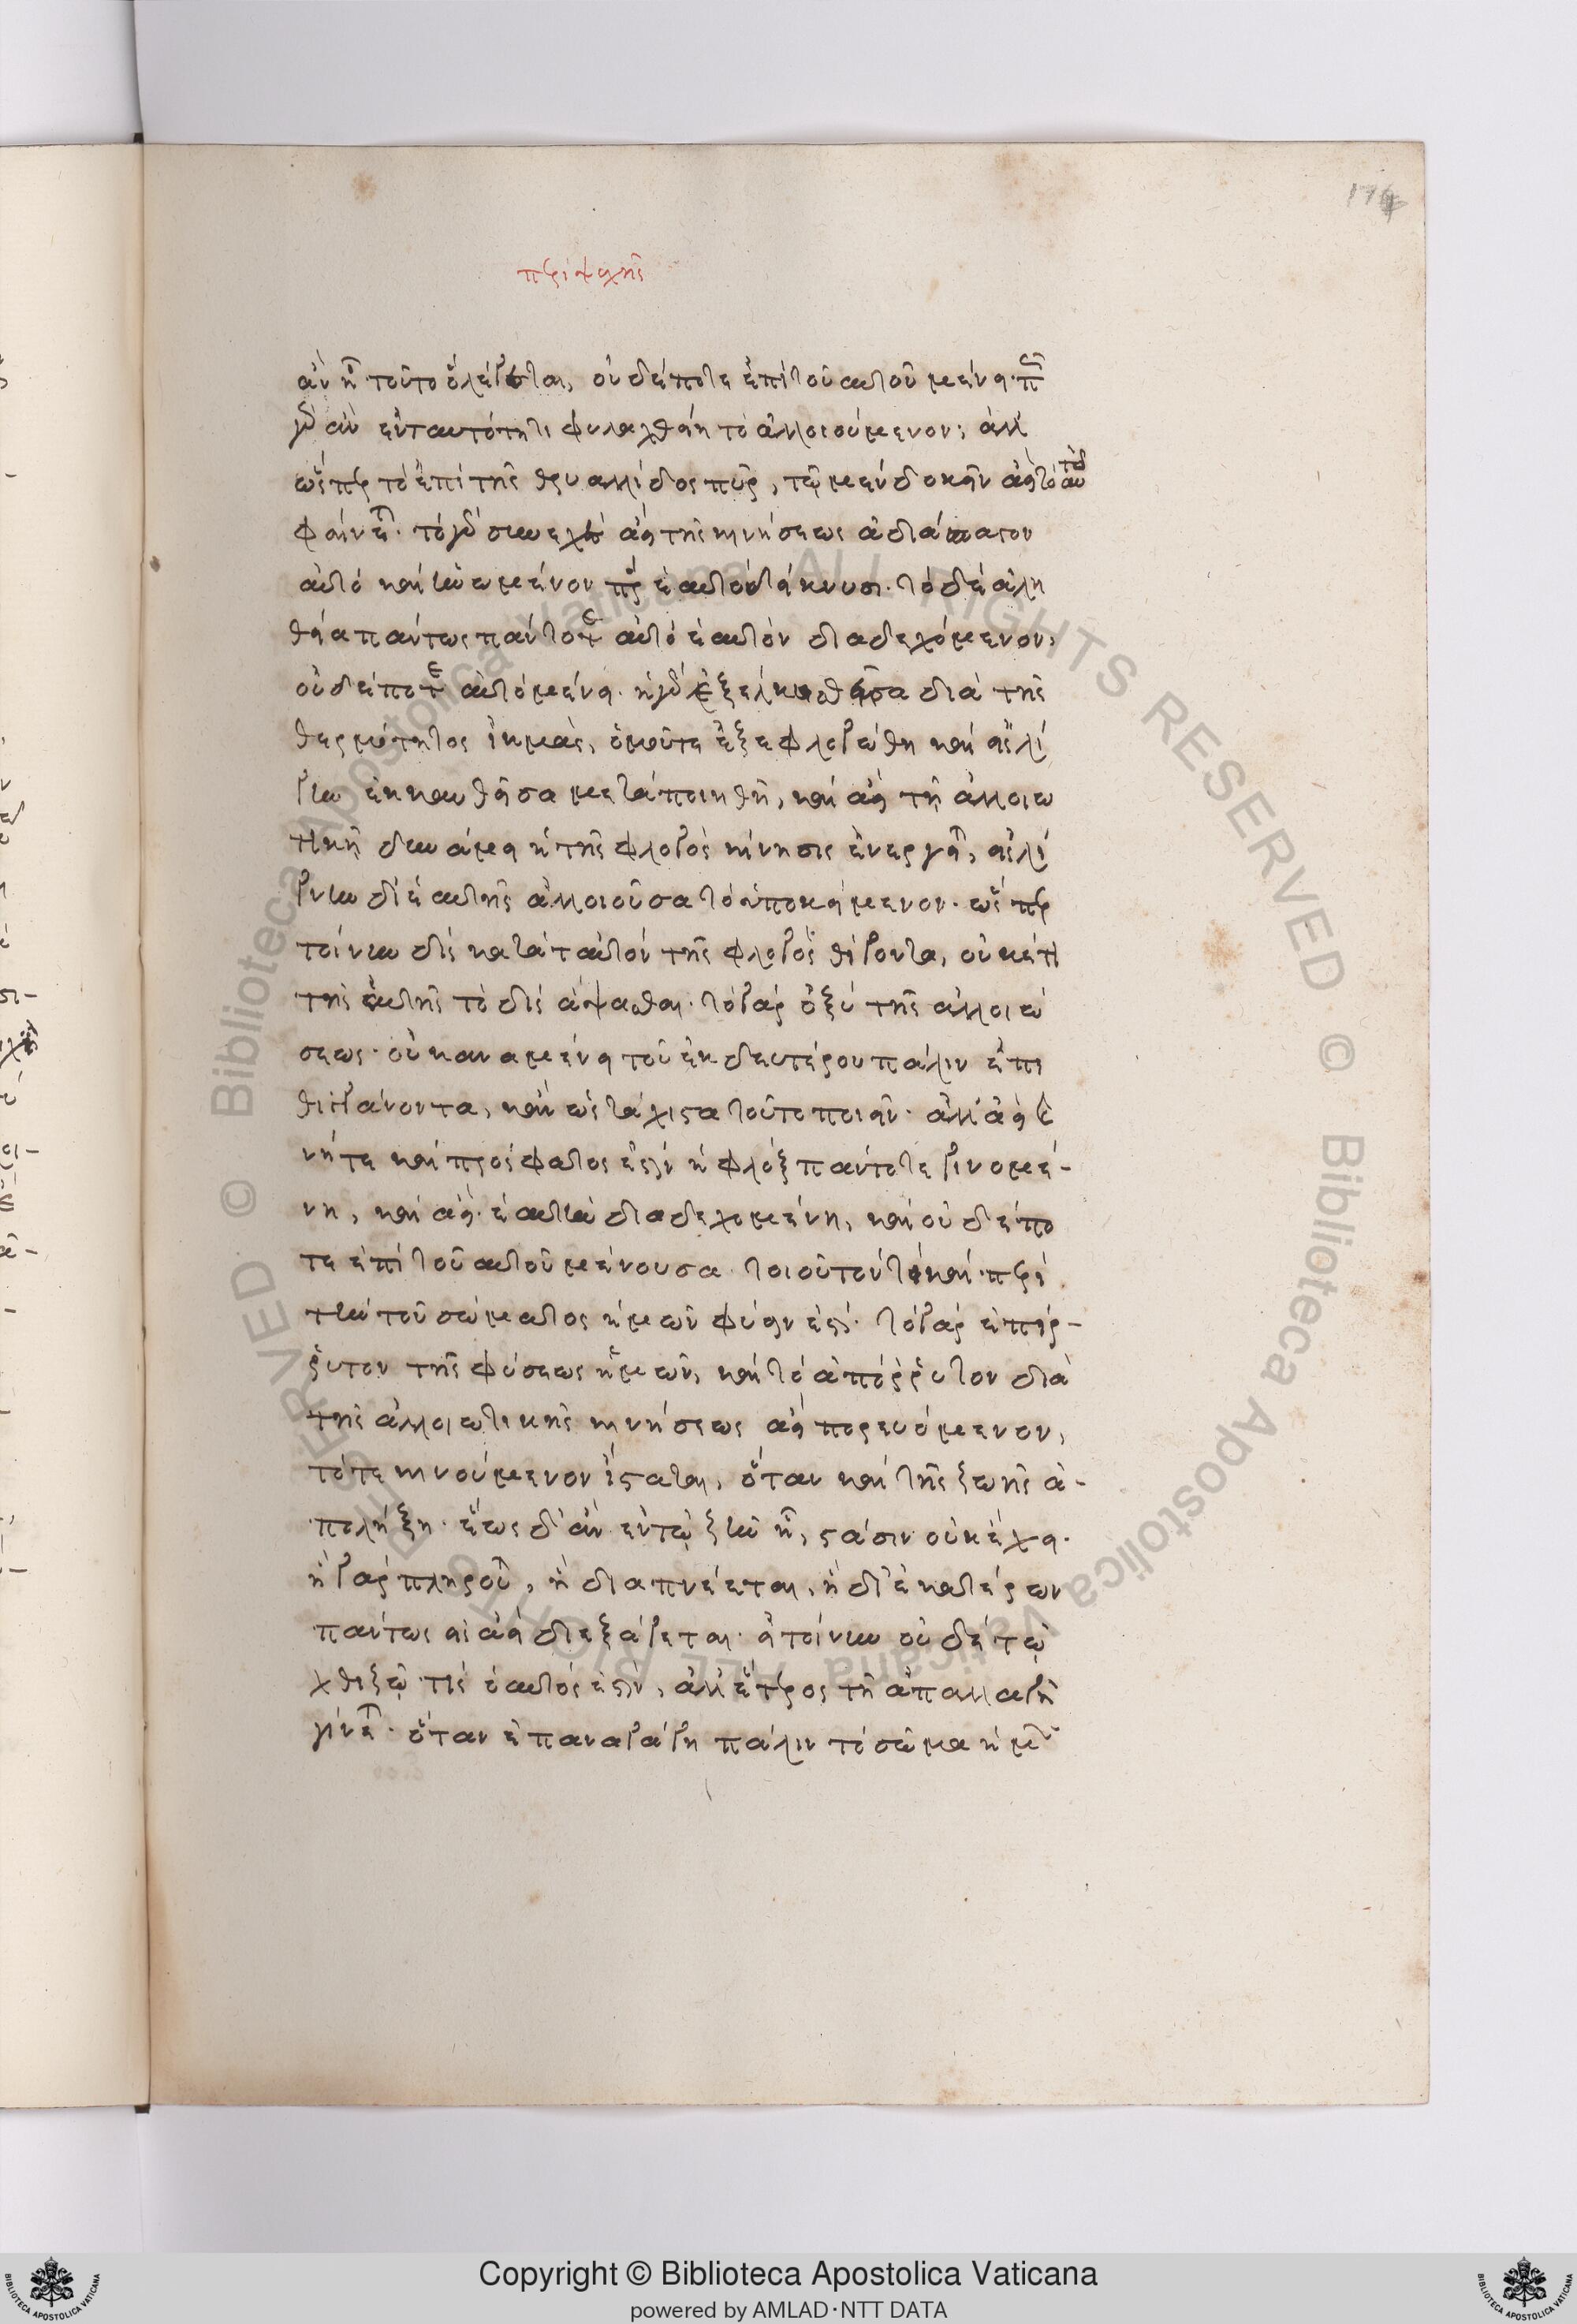 174
περὶ ψυχῆς
ἂν ᾖ τοῦτο ὃ λέγεται, οὐδέποτε ἐπὶ τοῦ αὐτοῦ μένει· πῶς
γὰρ ἂν ἐν ταυτότητι φυλαχθείη τὸ ἀλλοιούμενον; ἀλλ
ὥσπερ τὸ ἐπὶ τῆς θρυαλλίδος πῦρ, τῷ μὲν δοκεῖν ἀεὶ τὸ αὐτὸ
φαίνεται· τὸ γὰρ συνεχὲς ἀεὶ τῆς κινήσεως ἀδιάσπαστον
αὐτὸ καὶ ἡνωμένον πρὸς ἑαυτὸ δείκνυσι· τὸ δὲ ἀλη
θείᾳ πάντως πάντοτε αὐτὸ ἑαυτὸν διαδεχόμενον,
οὐδέποτε αὐτὸ μένει· ἡ γὰρ ἐξελκυσθεῖσα διὰ τῆς
θερμότητος ἰκμὰς, ὁμοῦ τε ἐξεφλογώθη καὶ εἰς λι
γνὺν ἐκκαυθεῖσα μεταποιηθῇ, καὶ ἀεὶ τῇ ἀλλοιω
τικῇ δυνάμει ἡ τῆς φλογὸς κίνησις ἐνεργεῖ, εἰς λι
γνὺν δι' ἑαυτῆς ἀλλοιοῦσα τὸ ὑποκείμενον· ὥσπερ
τοίνυν δὶς κατὰ ταυτὸν τῆς φλογὸς θιγόντα, οὐκ ἔτι
τῆς αὐτῆς τὸ δὶς ἅψασθαι· τὸ γὰρ ὀξὺ τῆς ἀλλοιώ
σεως· οὐκ ἀναμένει τοῦ ἐκ δευτέρου πάλιν ἐπι
θιγγάνοντα, κἂν ὡς τάχιστα τοῦτο ποιεῖν· ἀλλ' ἀεὶ και
νή τε καὶ πρόσφατός ἐστιν ἡ φλὸξ πάντοτε γινομέ-
νη, καὶ ἀεὶ ἑαυτὴν διαδεχομένη, καὶ οὐδέπο
τε ἐπὶ τοῦ αὐτοῦ μένουσα· τοιοῦτόν τι καὶ περὶ
τὴν τοῦ σώματος ἡμῶν φύσιν ἐστί· τὸ γὰρ ἐπίρ-
ρυτον τῆς φύσεως ἡμῶν, καὶ τὸ ἀπόρρυτον διὰ
τῆς ἀλλοιωτικῆς κινήσεως ἀεὶ πορευόμενον,
τότε κινούμενον ἵσταται, ὅταν καὶ τῆς ζωῆς ἀ-
πολήξῃ· ἕως δ' ἂν ἐν τῷ ζῆν ᾖ, στάσιν οὐκ ἔχει·
ἢ γὰρ πληροῦ, ἢ διαπνέεται, ἢ δι' ἑκατέρων
πάντως εἰσαεὶ διεξάγεται· εἰ τοίνυν οὐδὲ τῷ
χθιζῷ τις ὁ αὐτός ἐστιν, ἀλλ' ἕτερος τῇ ἀπαλλαγῇ
γίνεται· ὅταν ἐπαναγάγῃ πάλιν τὸ σῶμα ἡμῶν